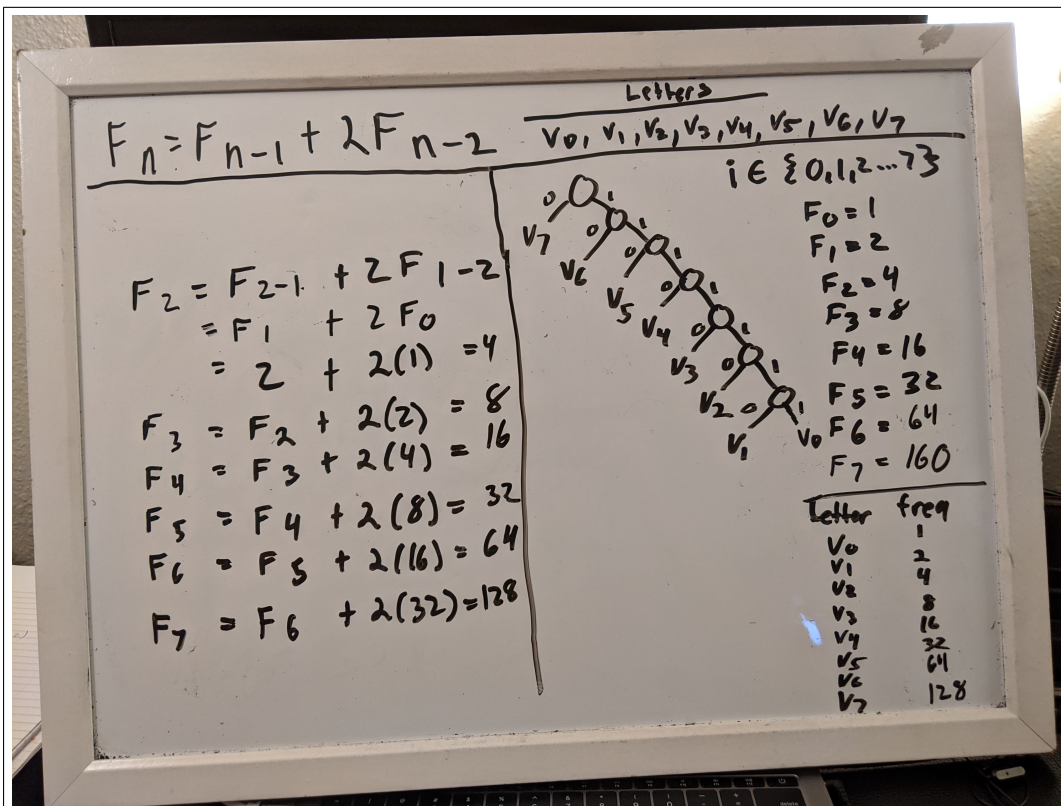 Letters
F_n = F_{n-1} + 2F_{n-2}
V_0, V_1, V_2, V_3, V_4, V_5, V_6, V_7
F_2 = F_{2-1} + 2F_{1-2}
= F_1 + 2F_0
= 2 + 2(1) = 4
F_3 = F_2 + 2(2) = 8
F_4 = F_3 + 2(4) = 16
F_5 = F_4 + 2(8) = 32
F_6 = F_5 + 2(16) = 64
F_7 = F_6 + 2(32) = 128
0 1
V_7 0 1
V_6 0 1
V_5 0 1
V_4 0 1
V_3 0 1
V_2 0 1
V_1 V_0
i ∈ {0,1,2...7}
F_0 = 1
F_1 = 2
F_2 = 4
F_3 = 8
F_4 = 16
F_5 = 32
F_6 = 64
F_7 = 160
Letter freq
V_0 1
V_1 2
V_2 4
V_3 8
V_4 16
V_5 32
V_6 64
V_7 128